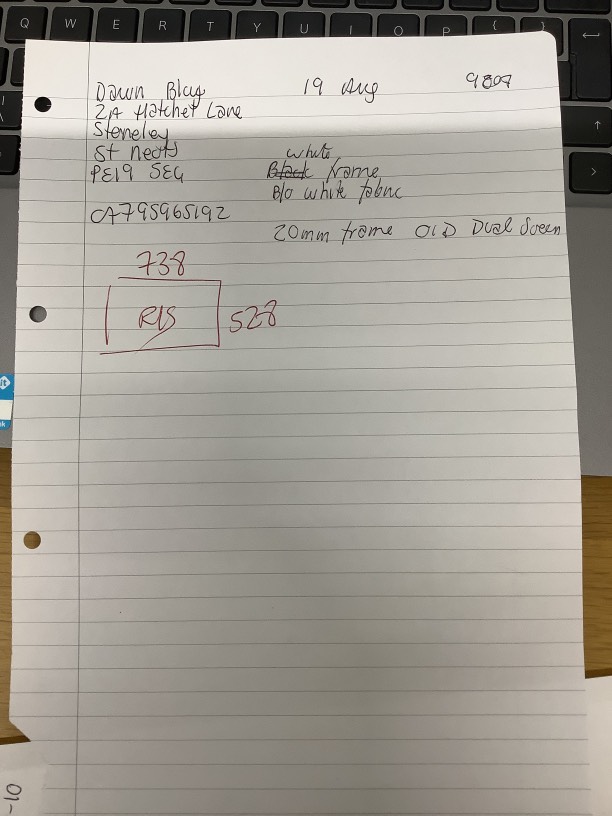 Q W E R T Y U I O P { }
Dawn Blay 19 Aug 9807
2A Hatchet Lane
Stoneley
St Neots
PE19 5EG
white
Black frame
B/O white fabric
CA795965192
20mm frame OLD Dual Sceen
738
R/S 528
-10